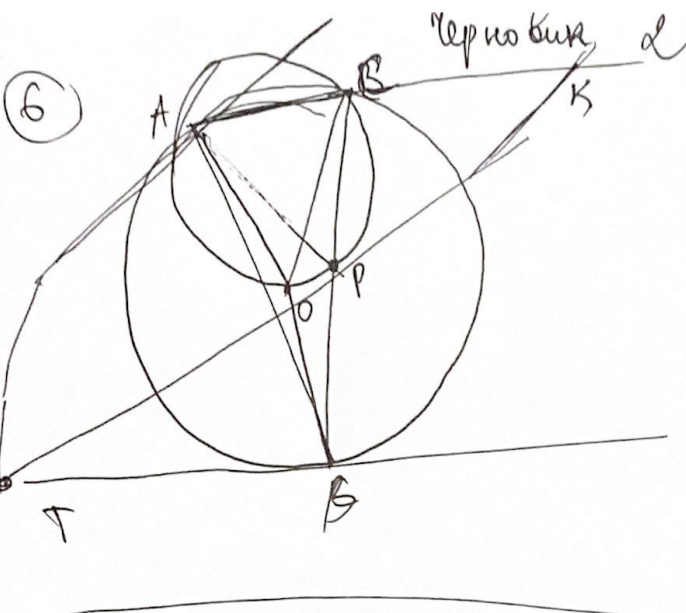 Черновик
6
A
B
K
P
O
T
B